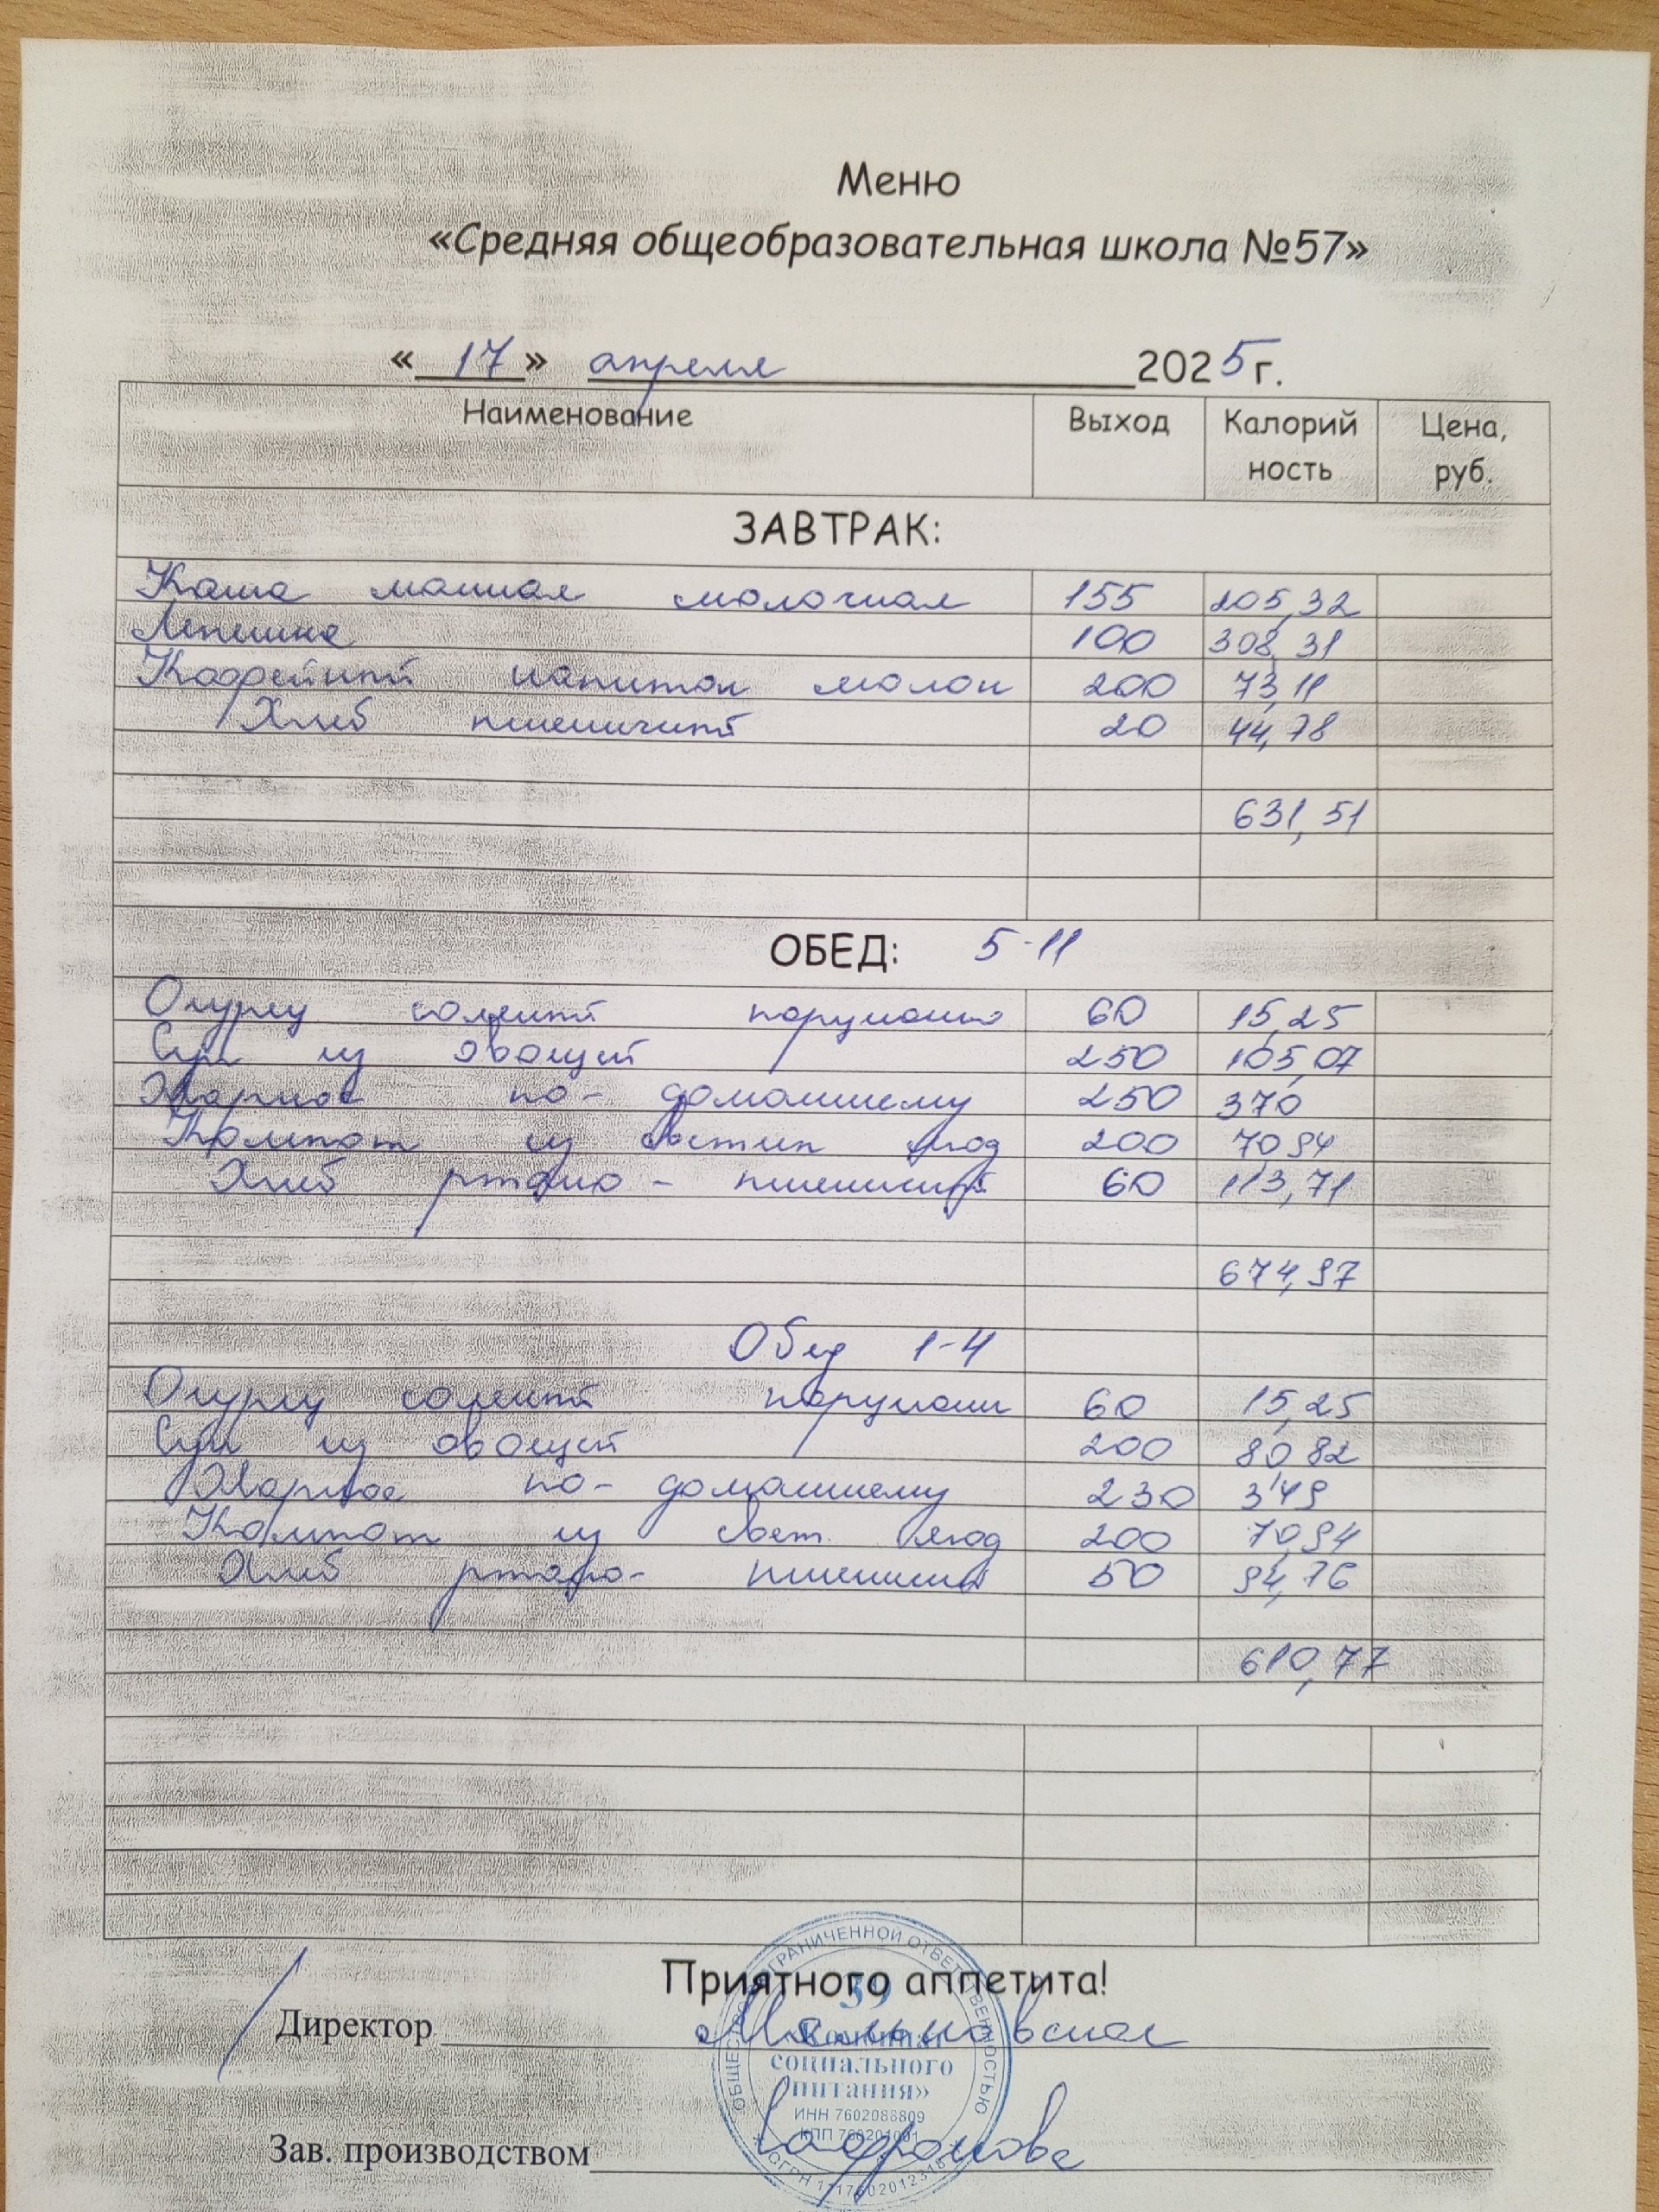 Меню
«Средняя общеобразовательная школа №57»
«17» апреля 2025 г.
Наименование Выход Калорийность Цена, руб.
ЗАВТРАК:
Каша манная молочная 155 205,32
Лепешка 100 308,31
Кофейный напиток молоч 200 73,11
Хлеб пшеничный 20 44,78
631,51
ОБЕД: 5-11
Огурец соленый порционно 60 15,25
Суп из овощей 250 105,07
Жаркое по-домашнему 250 370
Компот из свежих ягод 200 70,94
Хлеб ржано-пшеничный 60 113,71
674,97
Обед 1-4
Огурец соленый порционн 60 15,25
Суп из овощей 200 80,82
Жаркое по-домашнему 230 349
Компот из свеж. ягод 200 70,94
Хлеб ржано-пшеничный 50 94,76
610,77
Приятного аппетита!
Директор
Зав. производством
ОБЩЕСТВО С ОГРАНИЧЕННОЙ ОТВЕТСТВЕННОСТЬЮ
«Комбинат
социального
питания»
ИНН 7602088809